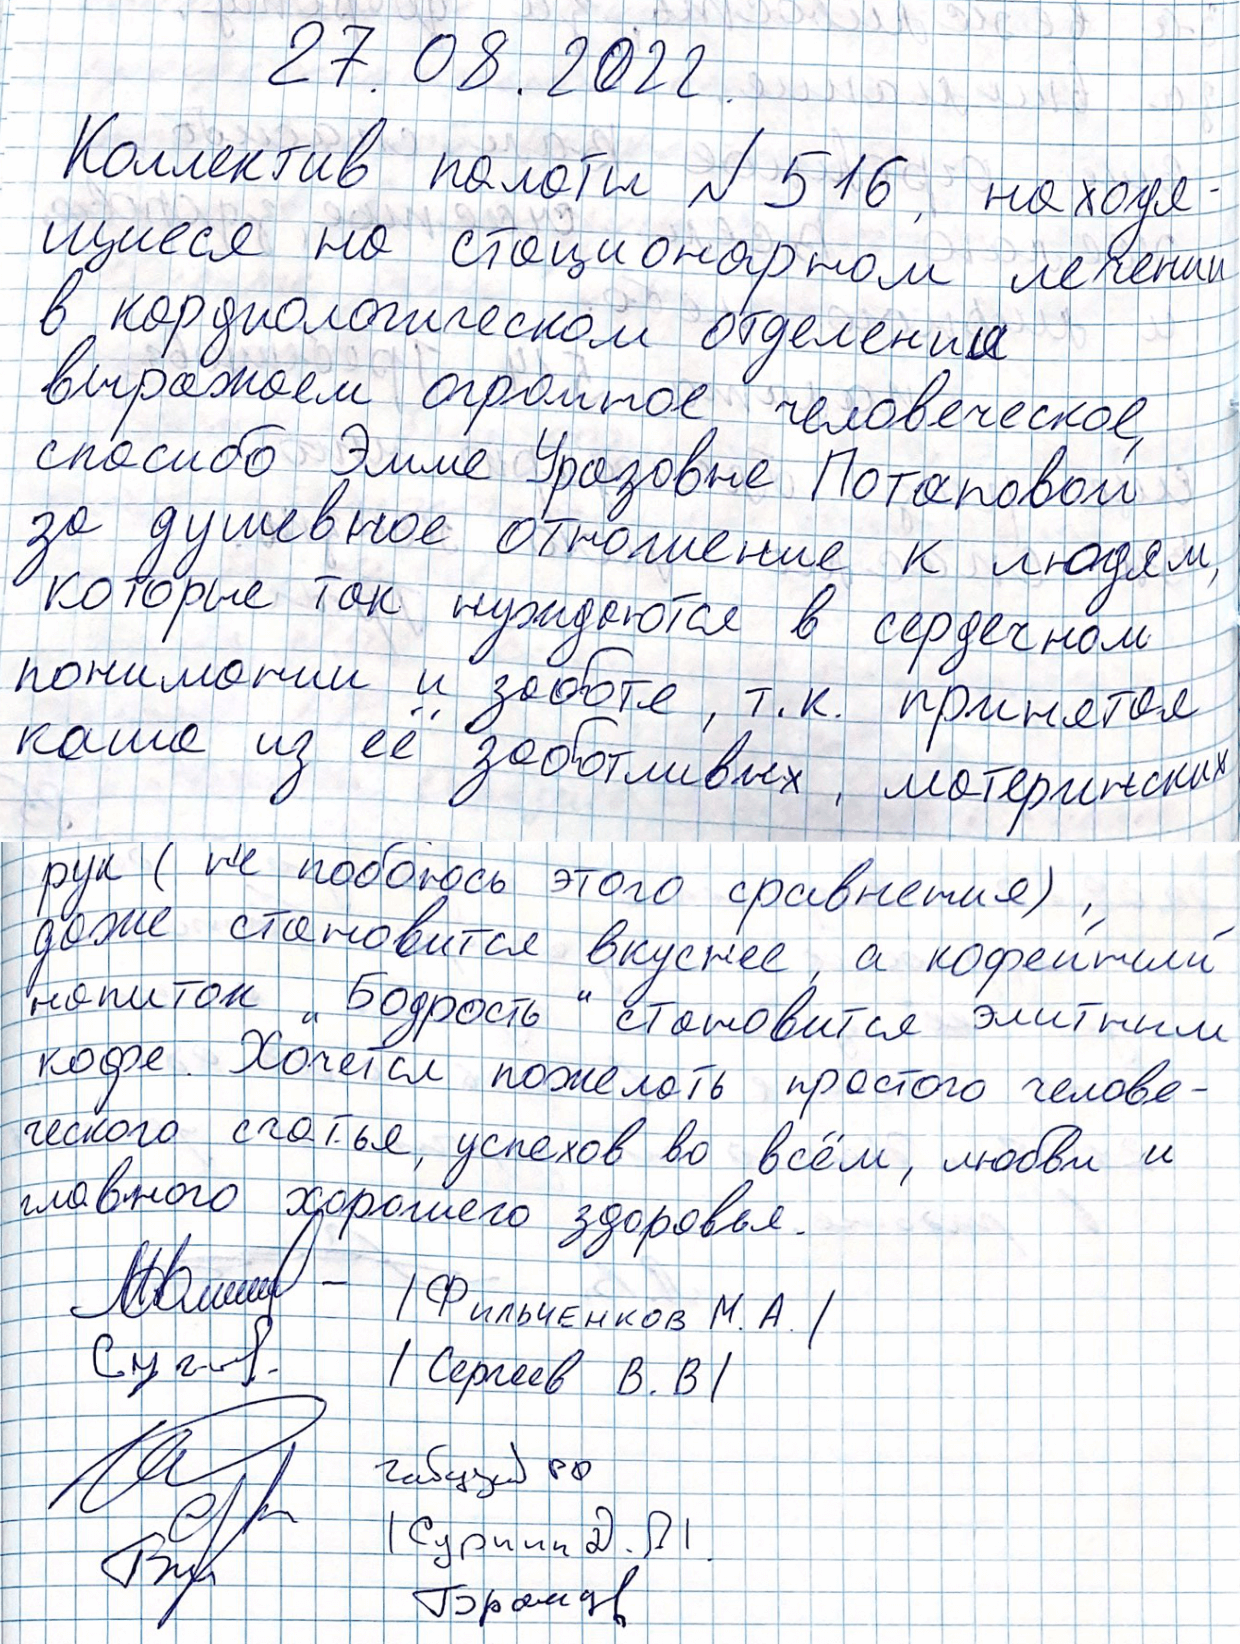 27.08.2022.
Коллектив палаты №516, находя-
щиеся на стационарном лечении
в кардиологическом отделении
выражаем огромное человеческое,
спасибо Эмме Уразовне Потаповой
за душевное отношение к людям,
которые так нуждаются в сердечном
понимании и заботе, т.к. принятая
каша из её заботливых, материнских
рук (не побоюсь этого сравнения),
даже становится вкуснее, а кофейный
напиток „Бодрость“ становится элитным
кофе. Хочется пожелать простого челове-
ческого счатья, успехов во всём, любви и
главного хорошего здоровья.
/Фильченков М.А./
/Сергеев В.В/
/Сурнин Д.П/.